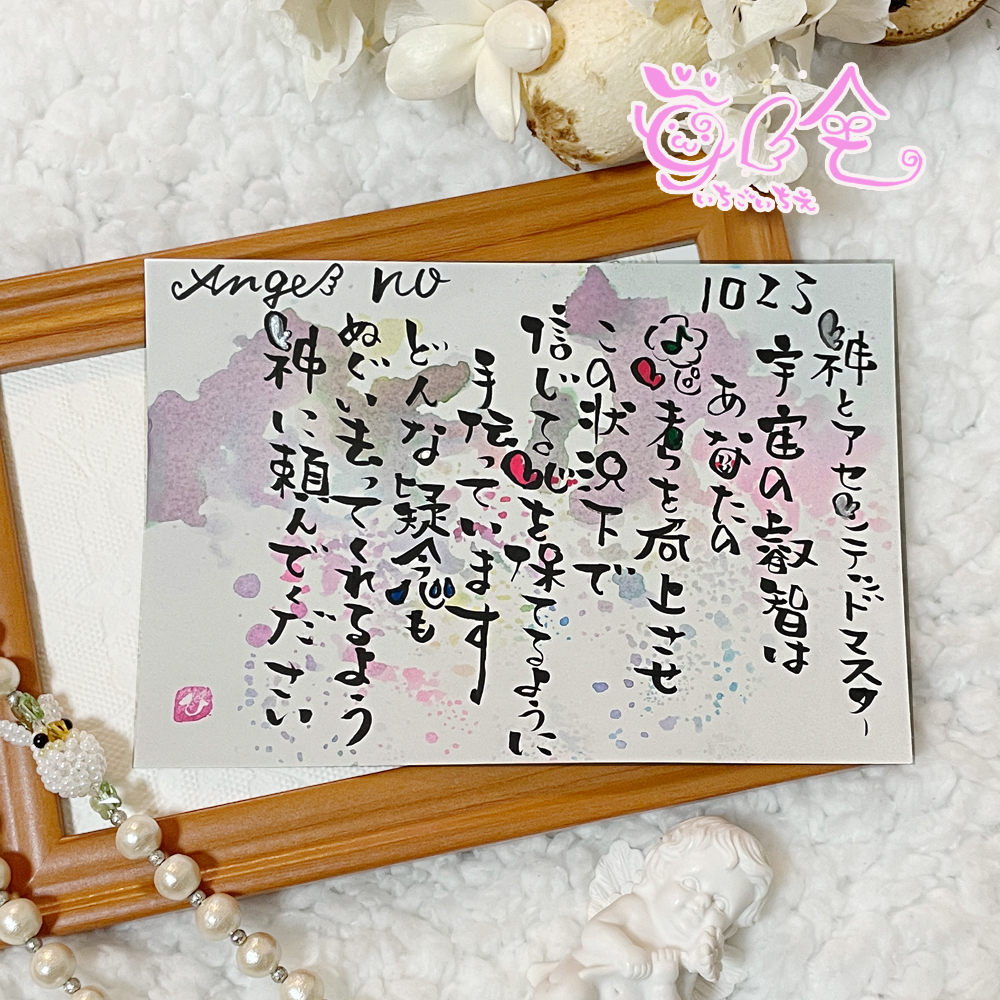 Angel no 1023
神とアセンテッドマスター
宇宙の叡智は
あなたの
考えを向上させ
この状況下で
信じる心を保てるように
手伝っています
どんな疑念も
ぬぐい去ってくれるよう
神に頼んでください
いちごいちえ